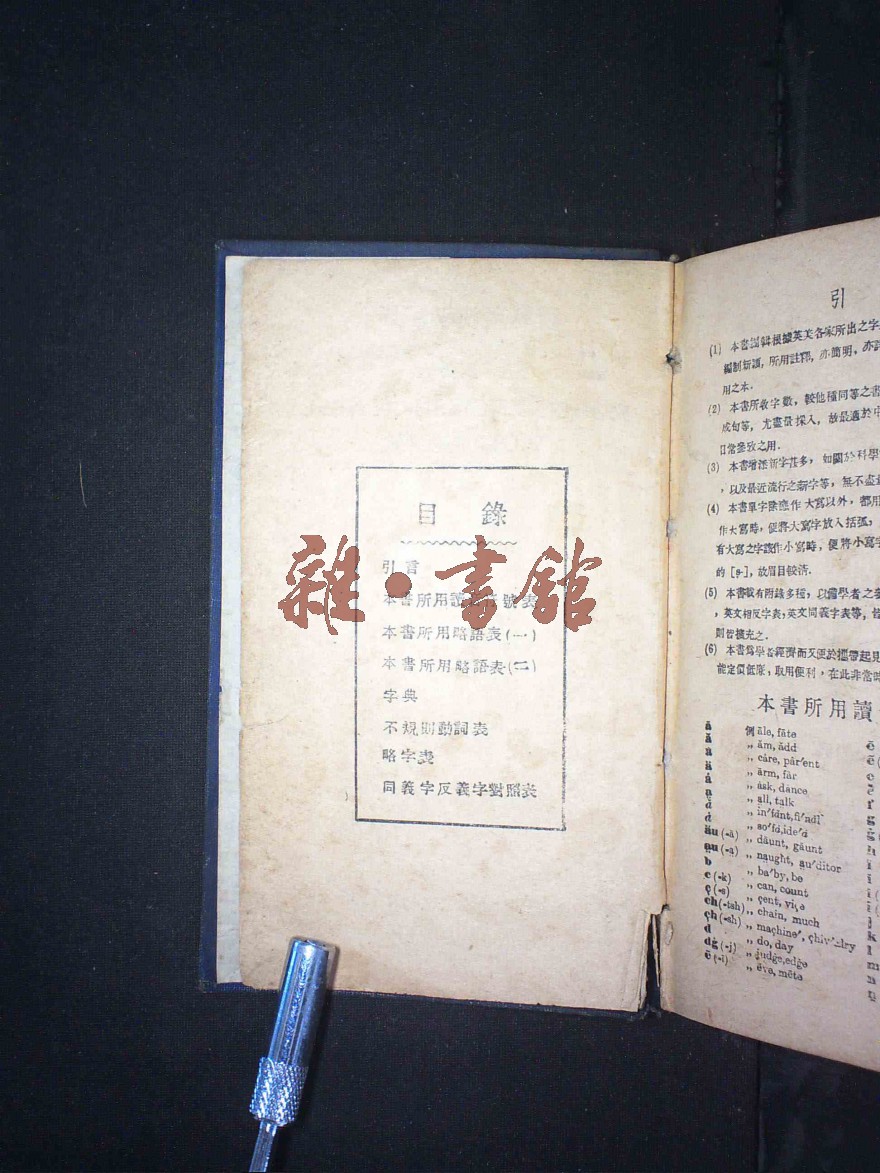 目錄
引言
本書所用讀音符號表
本書所用略語表(一)
本書所用略語表(二)
字典
不規則動詞表
略字表
同義字反義字對照表
雜·書館
引
(1) 本書編輯根據英美各家所出之字
編制新穎，所用註釋，亦簡明，亦
用之本.
(2) 本書所收字數，較他種同等之書
成句等，尤盡量採入，故最適於
日常參攷之用.
(3) 本書增添新字甚多，如關於科學
，以及最近流行之新字等，無不盡
(4) 本書單字除應作大寫以外，都用
作大寫時，便將大寫字放入括弧，
有大寫之字該作小寫時，便將小寫字
的 [s-]，故眉目較清.
(5) 本書載有附錄多種，以備學者之
，英文相反字表，英文同義字表等，
則皆擴充之.
(6) 本書爲學者經濟而又便於攜帶起見
能定價低廉，取用便利，在此非常時
本書所用讀
ā 例 āle, fāte
ă ,, ăm, ădd
,, câre, pâr'ent
ä ,, ärm, fär
,, ȧsk, dȧnce
,, all, talk
,, in'fant, fi'nal
,, so'fa, ide'a
äu (-ä) ,, däunt, gäunt
au (-a) ,, naught, au'ditor
b ,, ba'by, be
c (-k) ,, can, count
ç (-s) ,, çent, viçe
ch (-tsh) ,, chain, much
çh (-sh) ,, maçhine', çhiv'alry
d ,, do, day
dġ (-j) ,, judġe, edġe
ē (-i) ,, ēve, mēte